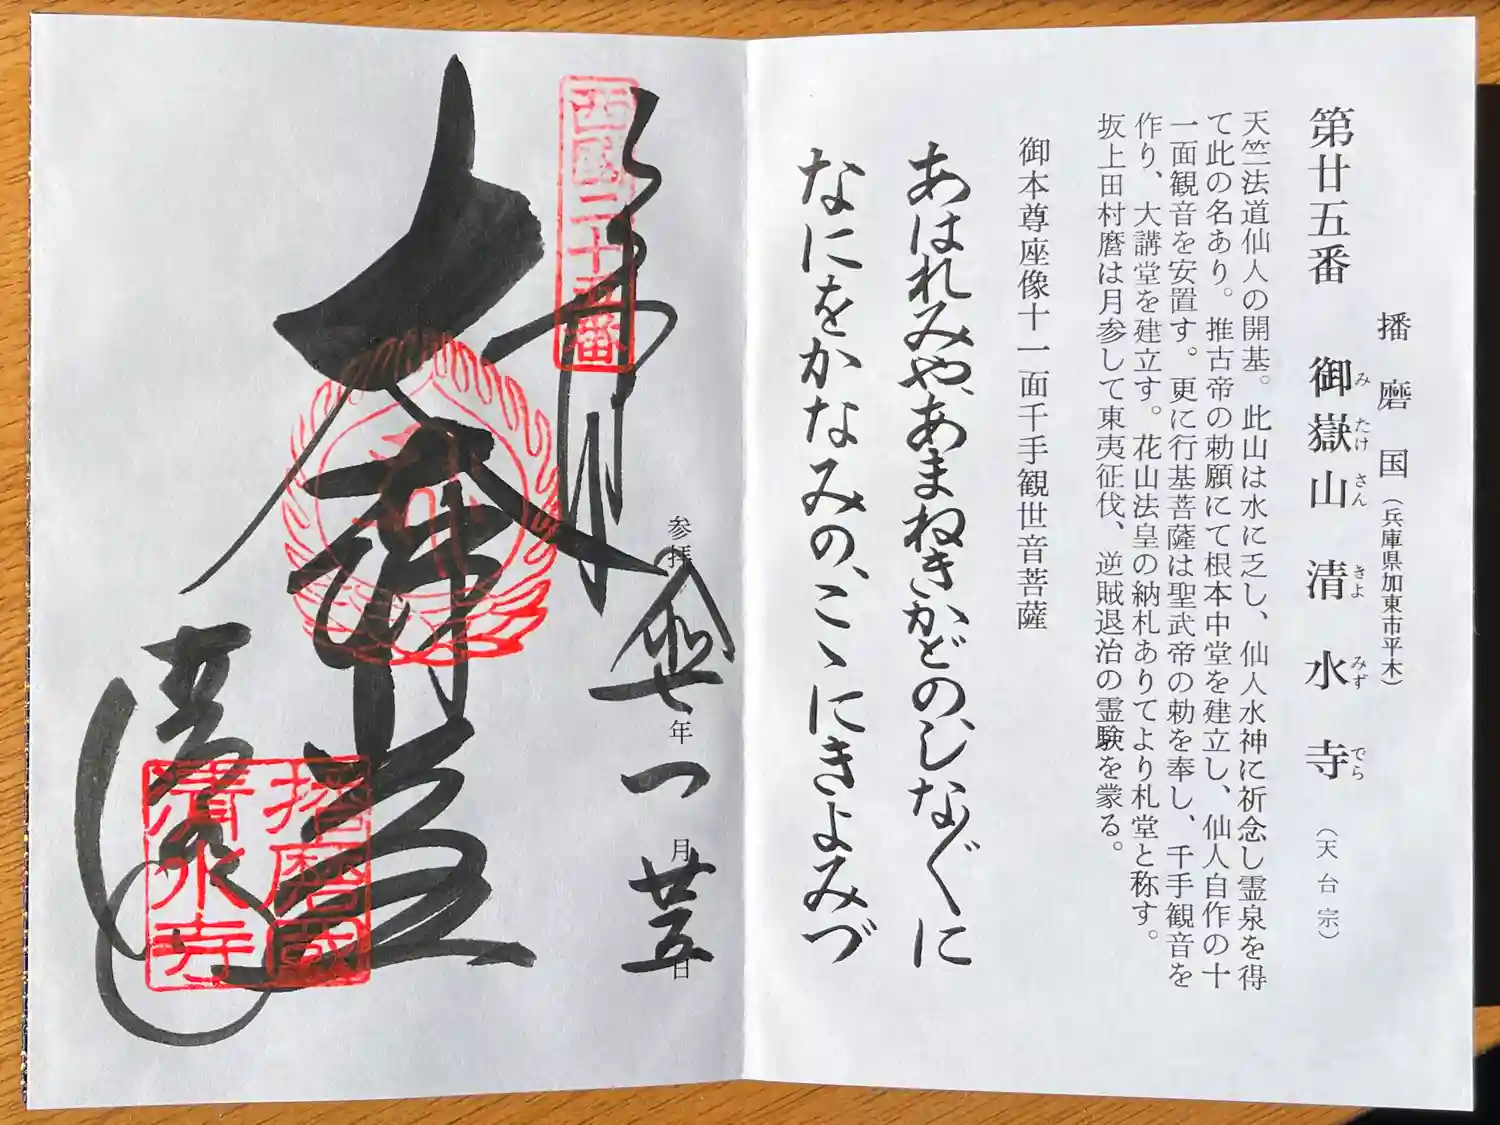 播磨国（兵庫県加東市平木）
第廿五番 御嶽山 清水寺（天台宗）
みたけさん きよみずでら
天竺法道仙人の開基。此山は水に乏し、仙人水神に祈念し霊泉を得
て此の名あり。推古帝の勅願にて根本中堂を建立し、仙人自作の十
一面観音を安置す。更に行基菩薩は聖武帝の勅を奉し、千手観音を
作り、大講堂を建立す。花山法皇の納札ありてより札堂と称す。
坂上田村麿は月参して東夷征伐、逆賊退治の霊験を蒙る。
御本尊座像十一面千手観世音菩薩
あはれみや、あまねきかどの、しなぐに
なにをかなみの、こゝにきよみづ
参拝 令和七年一月廿五日
奉拝
西国二十五番
大悲殿
播磨國
清水寺
清水寺